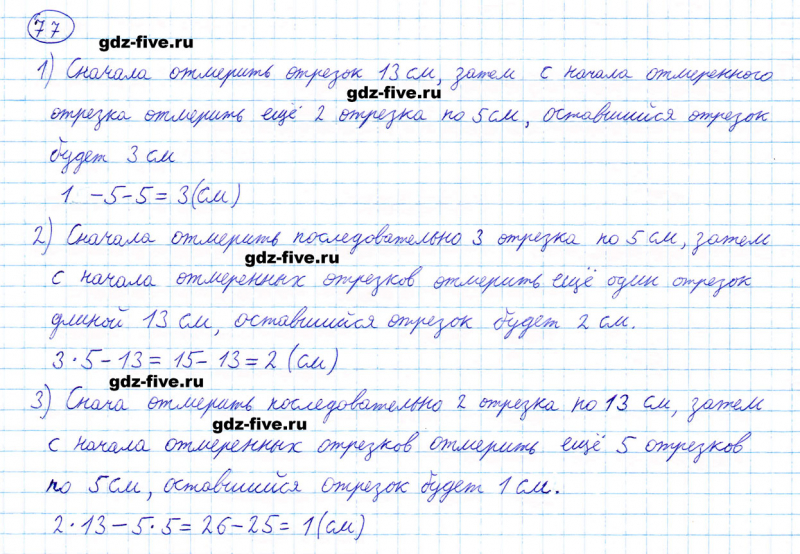 77
gdz-five.ru
1) Сначала отмерить отрезок 13 см, затем с начала отмеренного
gdz-five.ru
отрезка отмерить ещё 2 отрезка по 5 см, оставшийся отрезок
будет 3 см
1 -5-5=3(см)
2) Сначала отмерить последовательно 3 отрезка по 5 см, затем
gdz-five.ru
с начала отмеренных отрезков отмерить ещё один отрезок
длиной 13 см, оставшийся отрезок будет 2 см.
3·5-13=15-13=2 (см)
gdz-five.ru
3) Снача отмерить последовательно 2 отрезка по 13 см, затем
gdz-five.ru
с начала отмеренных отрезков отмерить ещё 5 отрезков
по 5 см, оставшийся отрезок будет 1 см.
2·13-5·5=26-25=1(см)